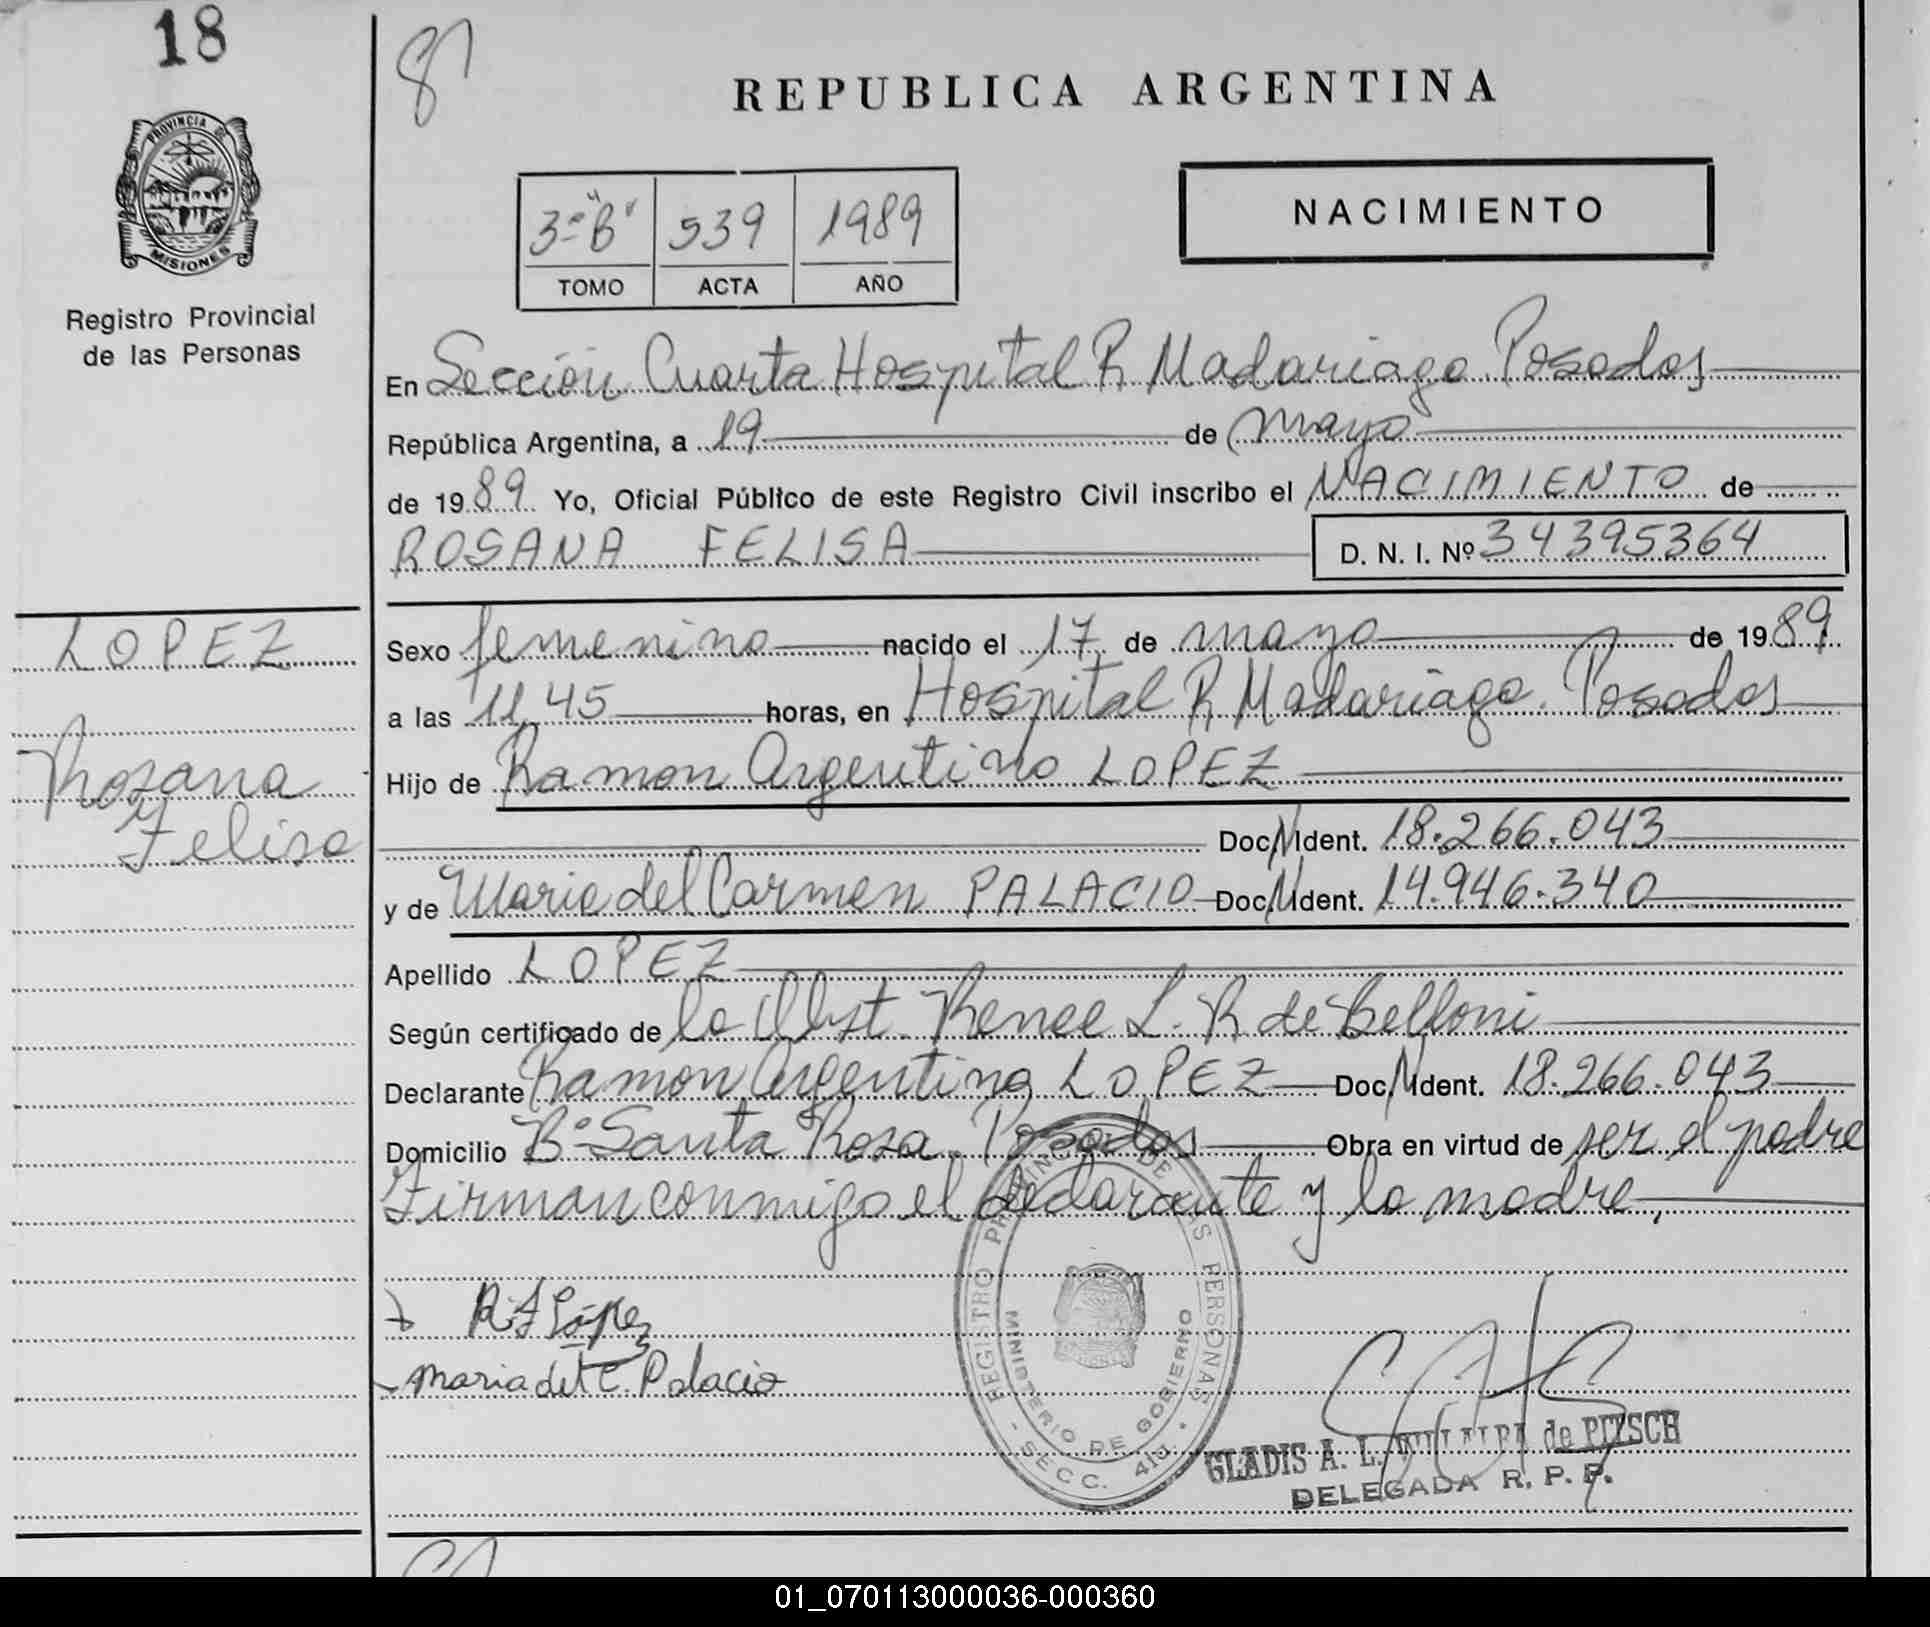 18
PROVINCIA DE
MISIONES
Registro Provincial
de las Personas
LOPEZ
Rosana
Felisa
REPUBLICA ARGENTINA
3º "B" 539 1989
TOMO ACTA AÑO
NACIMIENTO
En Sección Cuarta Hospital R Madariaga. Posadas
República Argentina, a 19 de mayo
de 1989 Yo, Oficial Público de este Registro Civil inscribo el NACIMIENTO de
ROSANA FELISA D. N. I. Nº 34395364
Sexo femenino nacido el 17 de mayo de 1989
a las 11,45 horas, en Hospital R Madariaga. Posadas
Hijo de Ramon Argentino LOPEZ
Doc. N Ident. 18.266.043
y de Maria del Carmen PALACIO Doc. N Ident. 14.946.340
Apellido LOPEZ
Según certificado de la Obst. Renee L. R de Belloni
Declarante Ramon Argentino LOPEZ Doc. N Ident. 18.266.043
Domicilio Bº Santa Rosa. Posadas Obra en virtud de ser el padre
Firman conmigo el declarante y la madre.
R. A López
Maria del C. Palacio
REGISTRO PROVINCIAL DE LAS PERSONAS
MINISTERIO DE GOBIERNO
SECC. 4ta.
GLADIS A. L. de PITSCH
DELEGADA R. P. P.
01_070113000036-000360